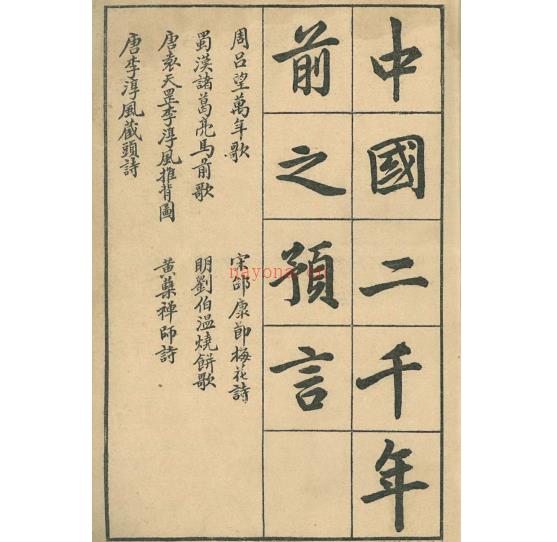 中國二千年
前之預言
周呂望萬年歌
宋邵康節梅花詩
蜀漢諸葛亮馬前歌
明劉伯溫燒餅歌
唐袁天罡李淳風推背圖
黃蘗禪師詩
唐李淳風藏頭詩